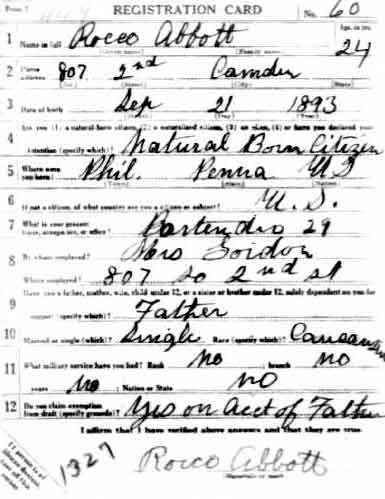 Form 1 REGISTRATION CARD No. 60
1 Name in full Rocco Abbott Age, in yrs. 24
(Given name) (Family name)
2 Home address 807 2nd Camden
(No.) (Street) (City) (State)
3 Date of birth Sep 21 1893
(Month) (Day) (Year)
4 Are you (1) a natural-born citizen, (2) a naturalized citizen, (3) an alien, (4) or have you declared your
intention (specify which)? Natural Born Citizen
5 Where were you born? Phil. Penna U S
(Town) (State) (Nation)
6 If not a citizen, of what country are you a citizen or subject? U. S.
7 What is your present trade, occupation, or office? 29
8 By whom employed?
Where employed? 807 So 2nd St
9 Have you a father, mother, wife, child under 12, or a sister or brother under 12, solely dependent on you for
support (specify which)? Father
10 Married or single (which)? Single Race (specify which)? Caucasian
11 What military service have you had? Rank no ; branch no
years no ; Nation or State no
12 Do you claim exemption from draft (specify grounds)? Yes on Acct of Father
I affirm that I have verified above answers and that they are true.
1327
Rocco Abbott